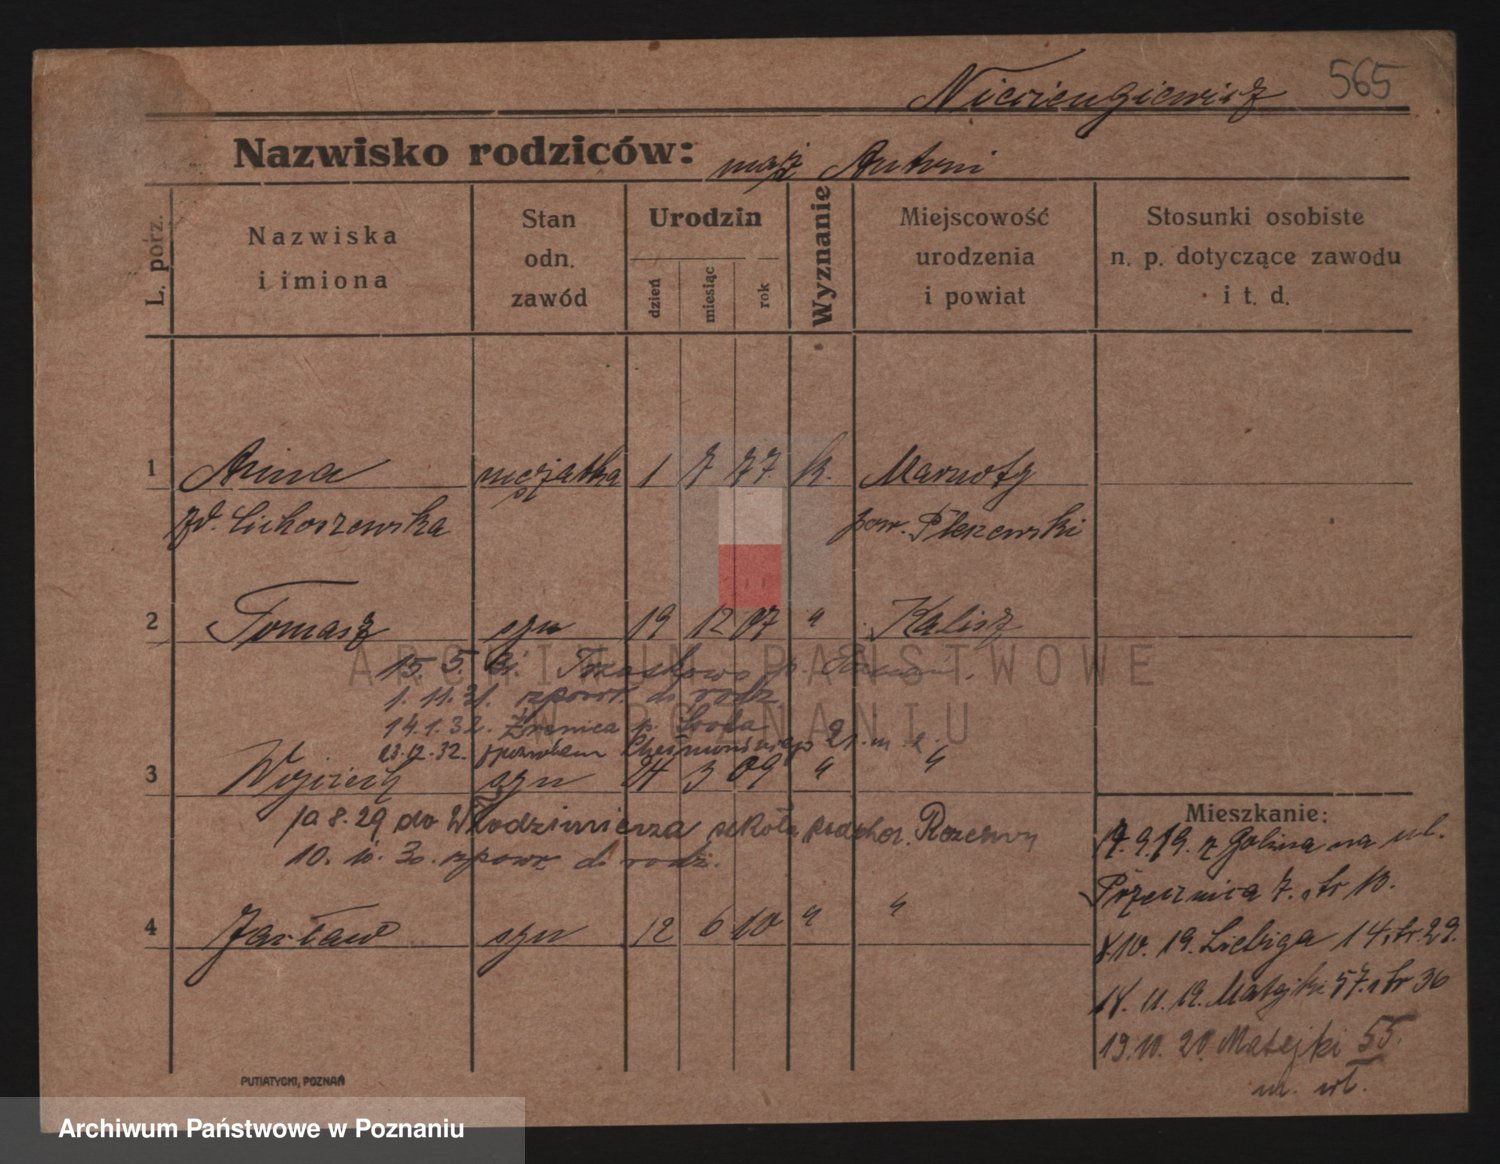 565
Nazwisko rodziców: mąż Antoni
L. porz.
Nazwiska i imiona
Stan odn. zawód
Urodzin
dzień
miesiąc
rok
Wyznanie
Miejscowość urodzenia i powiat
Stosunki osobiste n. p. dotyczące zawodu i t. d.
1 Anna mężatka 1 7 77 k.
zd. Lichoszewska pow. Pleszewski
2 Tomasz syn 19 12 07 " Kalisz
15 5
1. 11. 31. zpowr. do rodz
14.1.32. Żrenica p. Środa
23.12.32.
3 Wojciech syn 24 3 09 " "
10 8.29 do Włodzimierza szkoła podchor. Rezerwy
10. 10. 30. zpowr do rodz.
4 Jarław syn 12 6 10 " "
Mieszkanie:
17.9.19. z Golina na ul.
Przecznica 7. str 13.
8.10. 19. Liebiga 14 str. 29.
18. 11. 19. Matejki 57. str 36
19.10. 20. Matejki 55.
m. wł.
PUTIATYCKI, POZNAŃ
ARCHIWUM PAŃSTWOWE
W POZNANIU
Archiwum Państwowe w Poznaniu